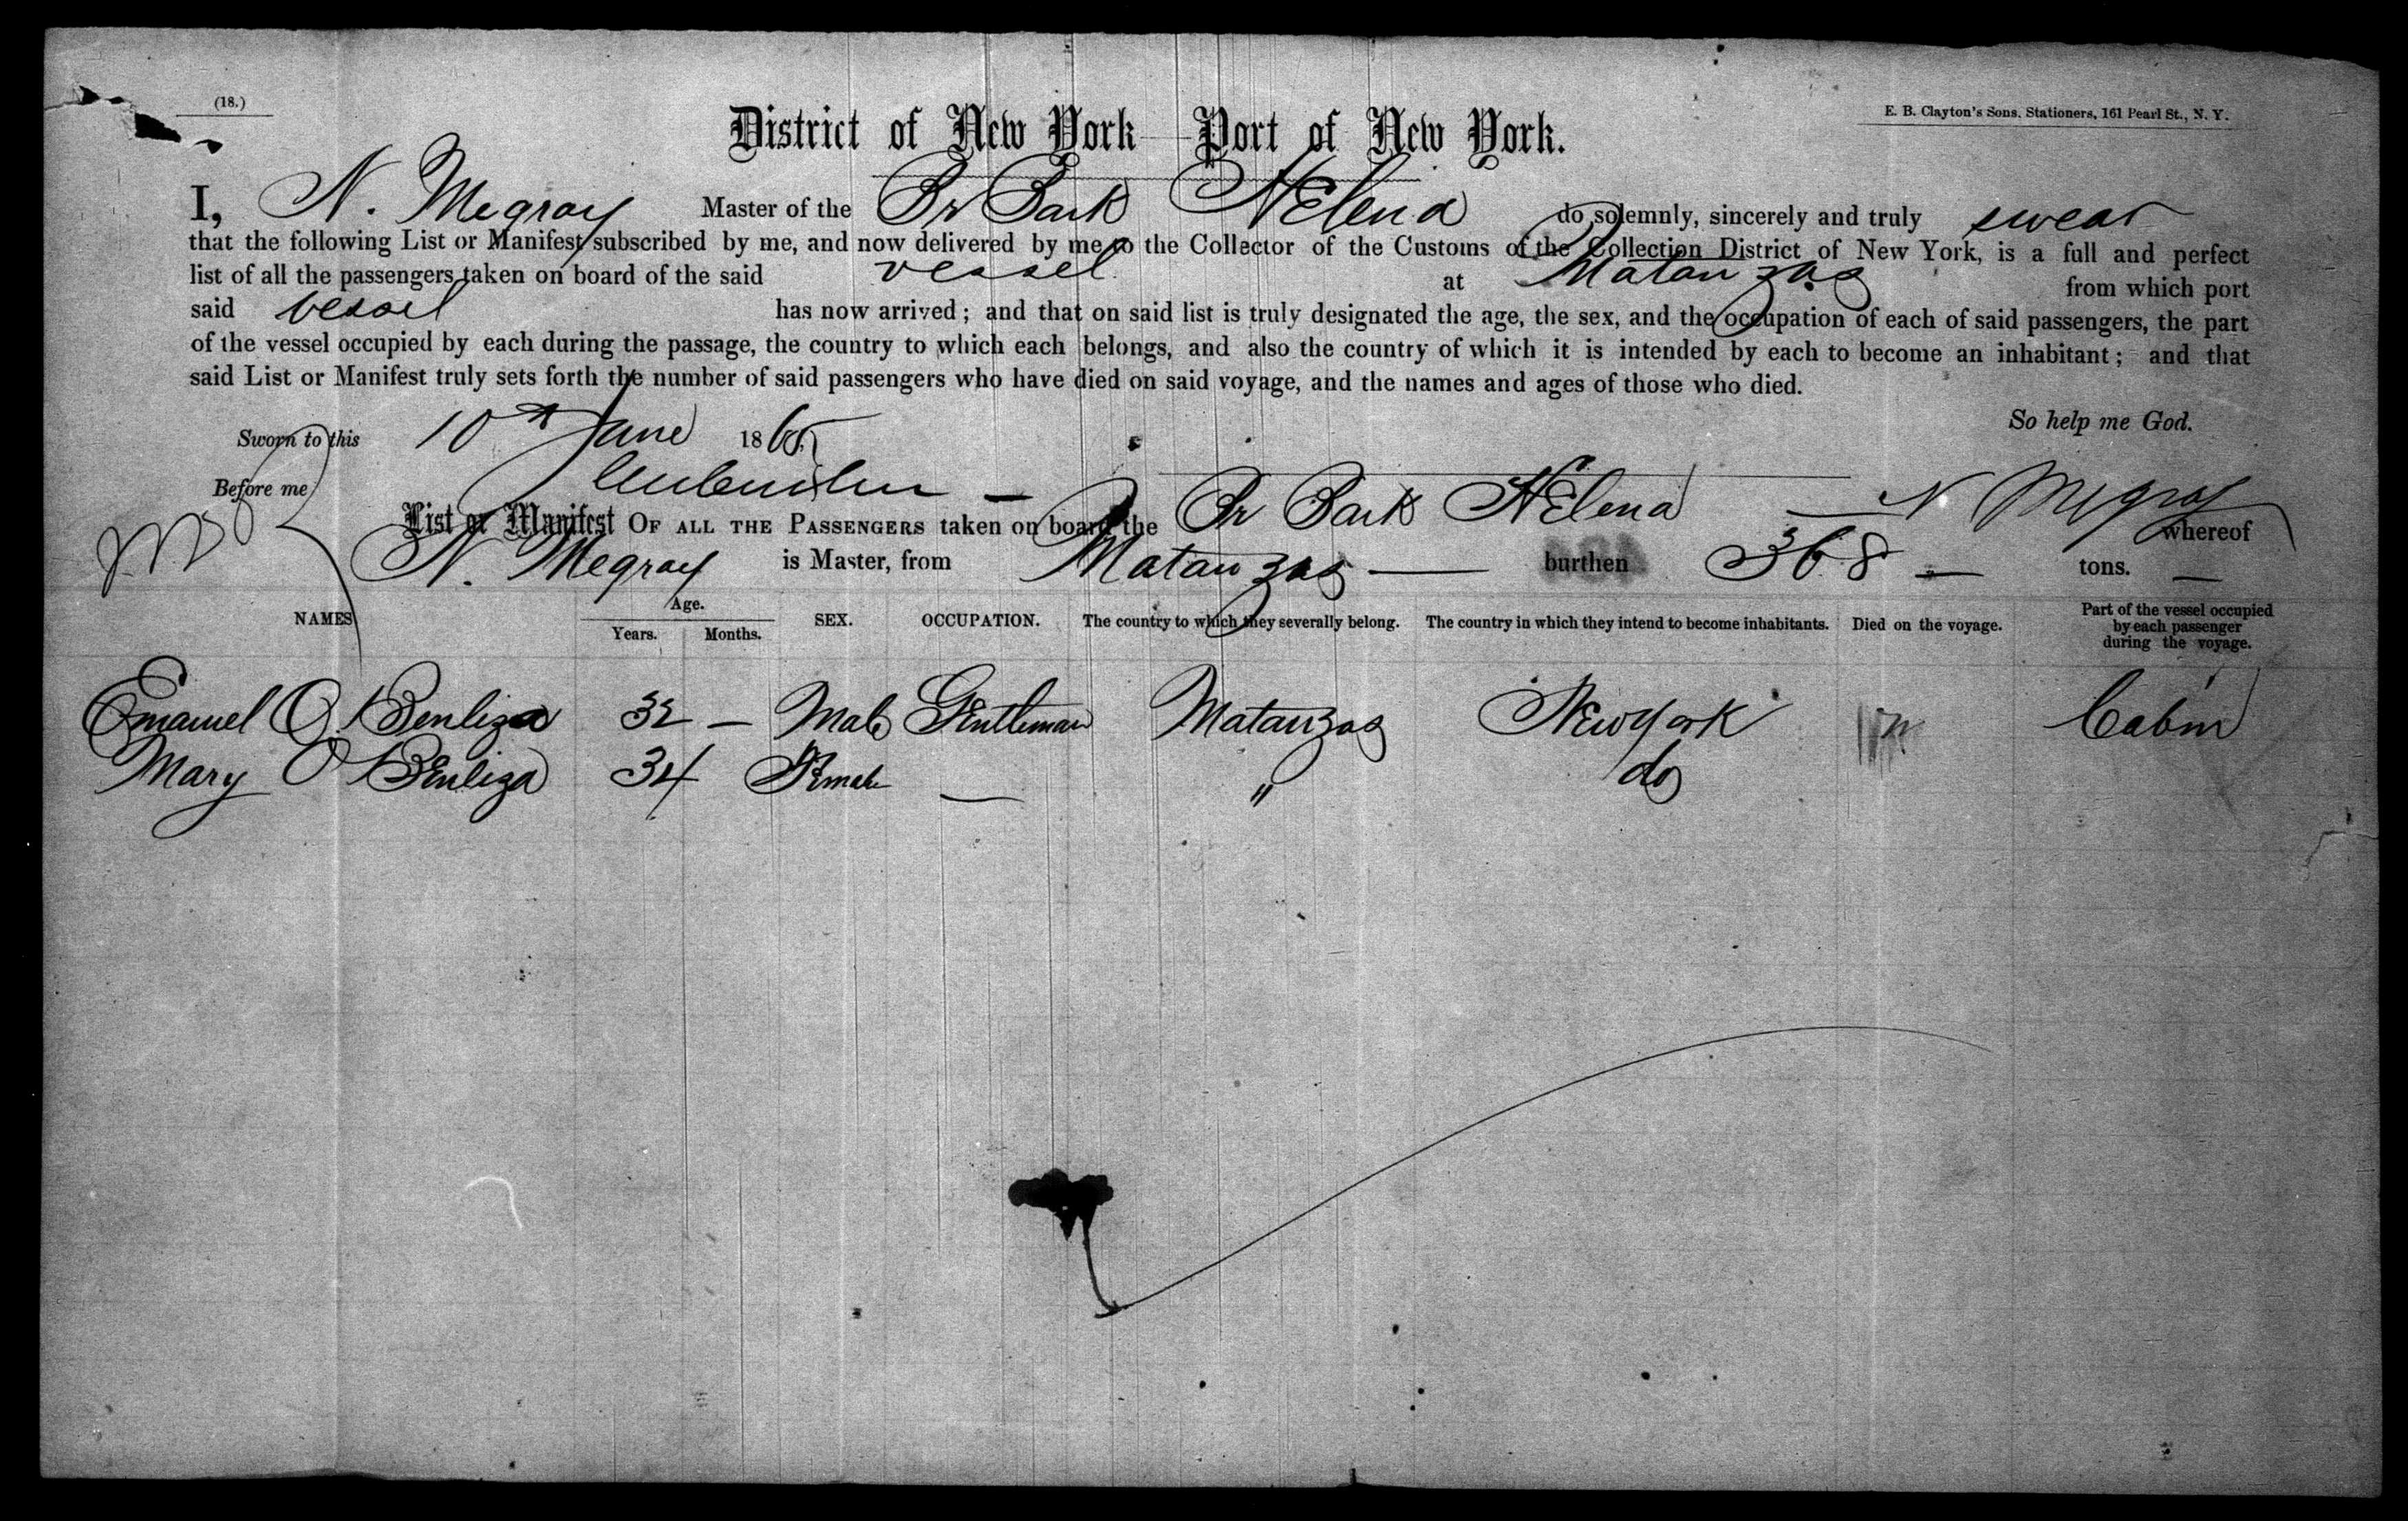 (18.)
E. B. Clayton's Sons, Stationers, 161 Pearl St., N. Y.
District of New York Port of New York.
I, N. Megray Master of the Br Bark Helena do solemnly, sincerely and truly swear
that the following List or Manifest subscribed by me, and now delivered by me to the Collector of the Customs of the Collection District of New York, is a full and perfect
list of all the passengers taken on board of the said vessel at Matanzas from which port
said vessel has now arrived; and that on said list is truly designated the age, the sex, and the occupation of each of said passengers, the part
of the vessel occupied by each during the passage, the country to which each belongs, and also the country of which it is intended by each to become an inhabitant; and that
said List or Manifest truly sets forth the number of said passengers who have died on said voyage, and the names and ages of those who died.
So help me God.
Sworn to this 10th June 1865
Before me N Megray
List or Manifest OF ALL THE PASSENGERS taken on board the Br Bark Helena whereof
N. Megray is Master, from Matanzas burthen 368 tons.
NAMES Age. Years. Months. SEX. OCCUPATION. The country to which they severally belong. The country in which they intend to become inhabitants. Died on the voyage. Part of the vessel occupied by each passenger during the voyage.
Emanuel O Benliza 32 — Male Gentleman Matanzas New York Cabin
Mary O Benliza 34 Female — " do